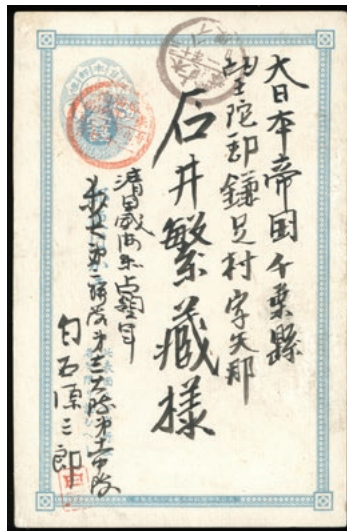 大日本帝国千葉縣
望陀郡鎌足村字矢那
石井繁藏様
清国威海衛占領軍
第二聯隊第三大隊第中隊
白石源三郎